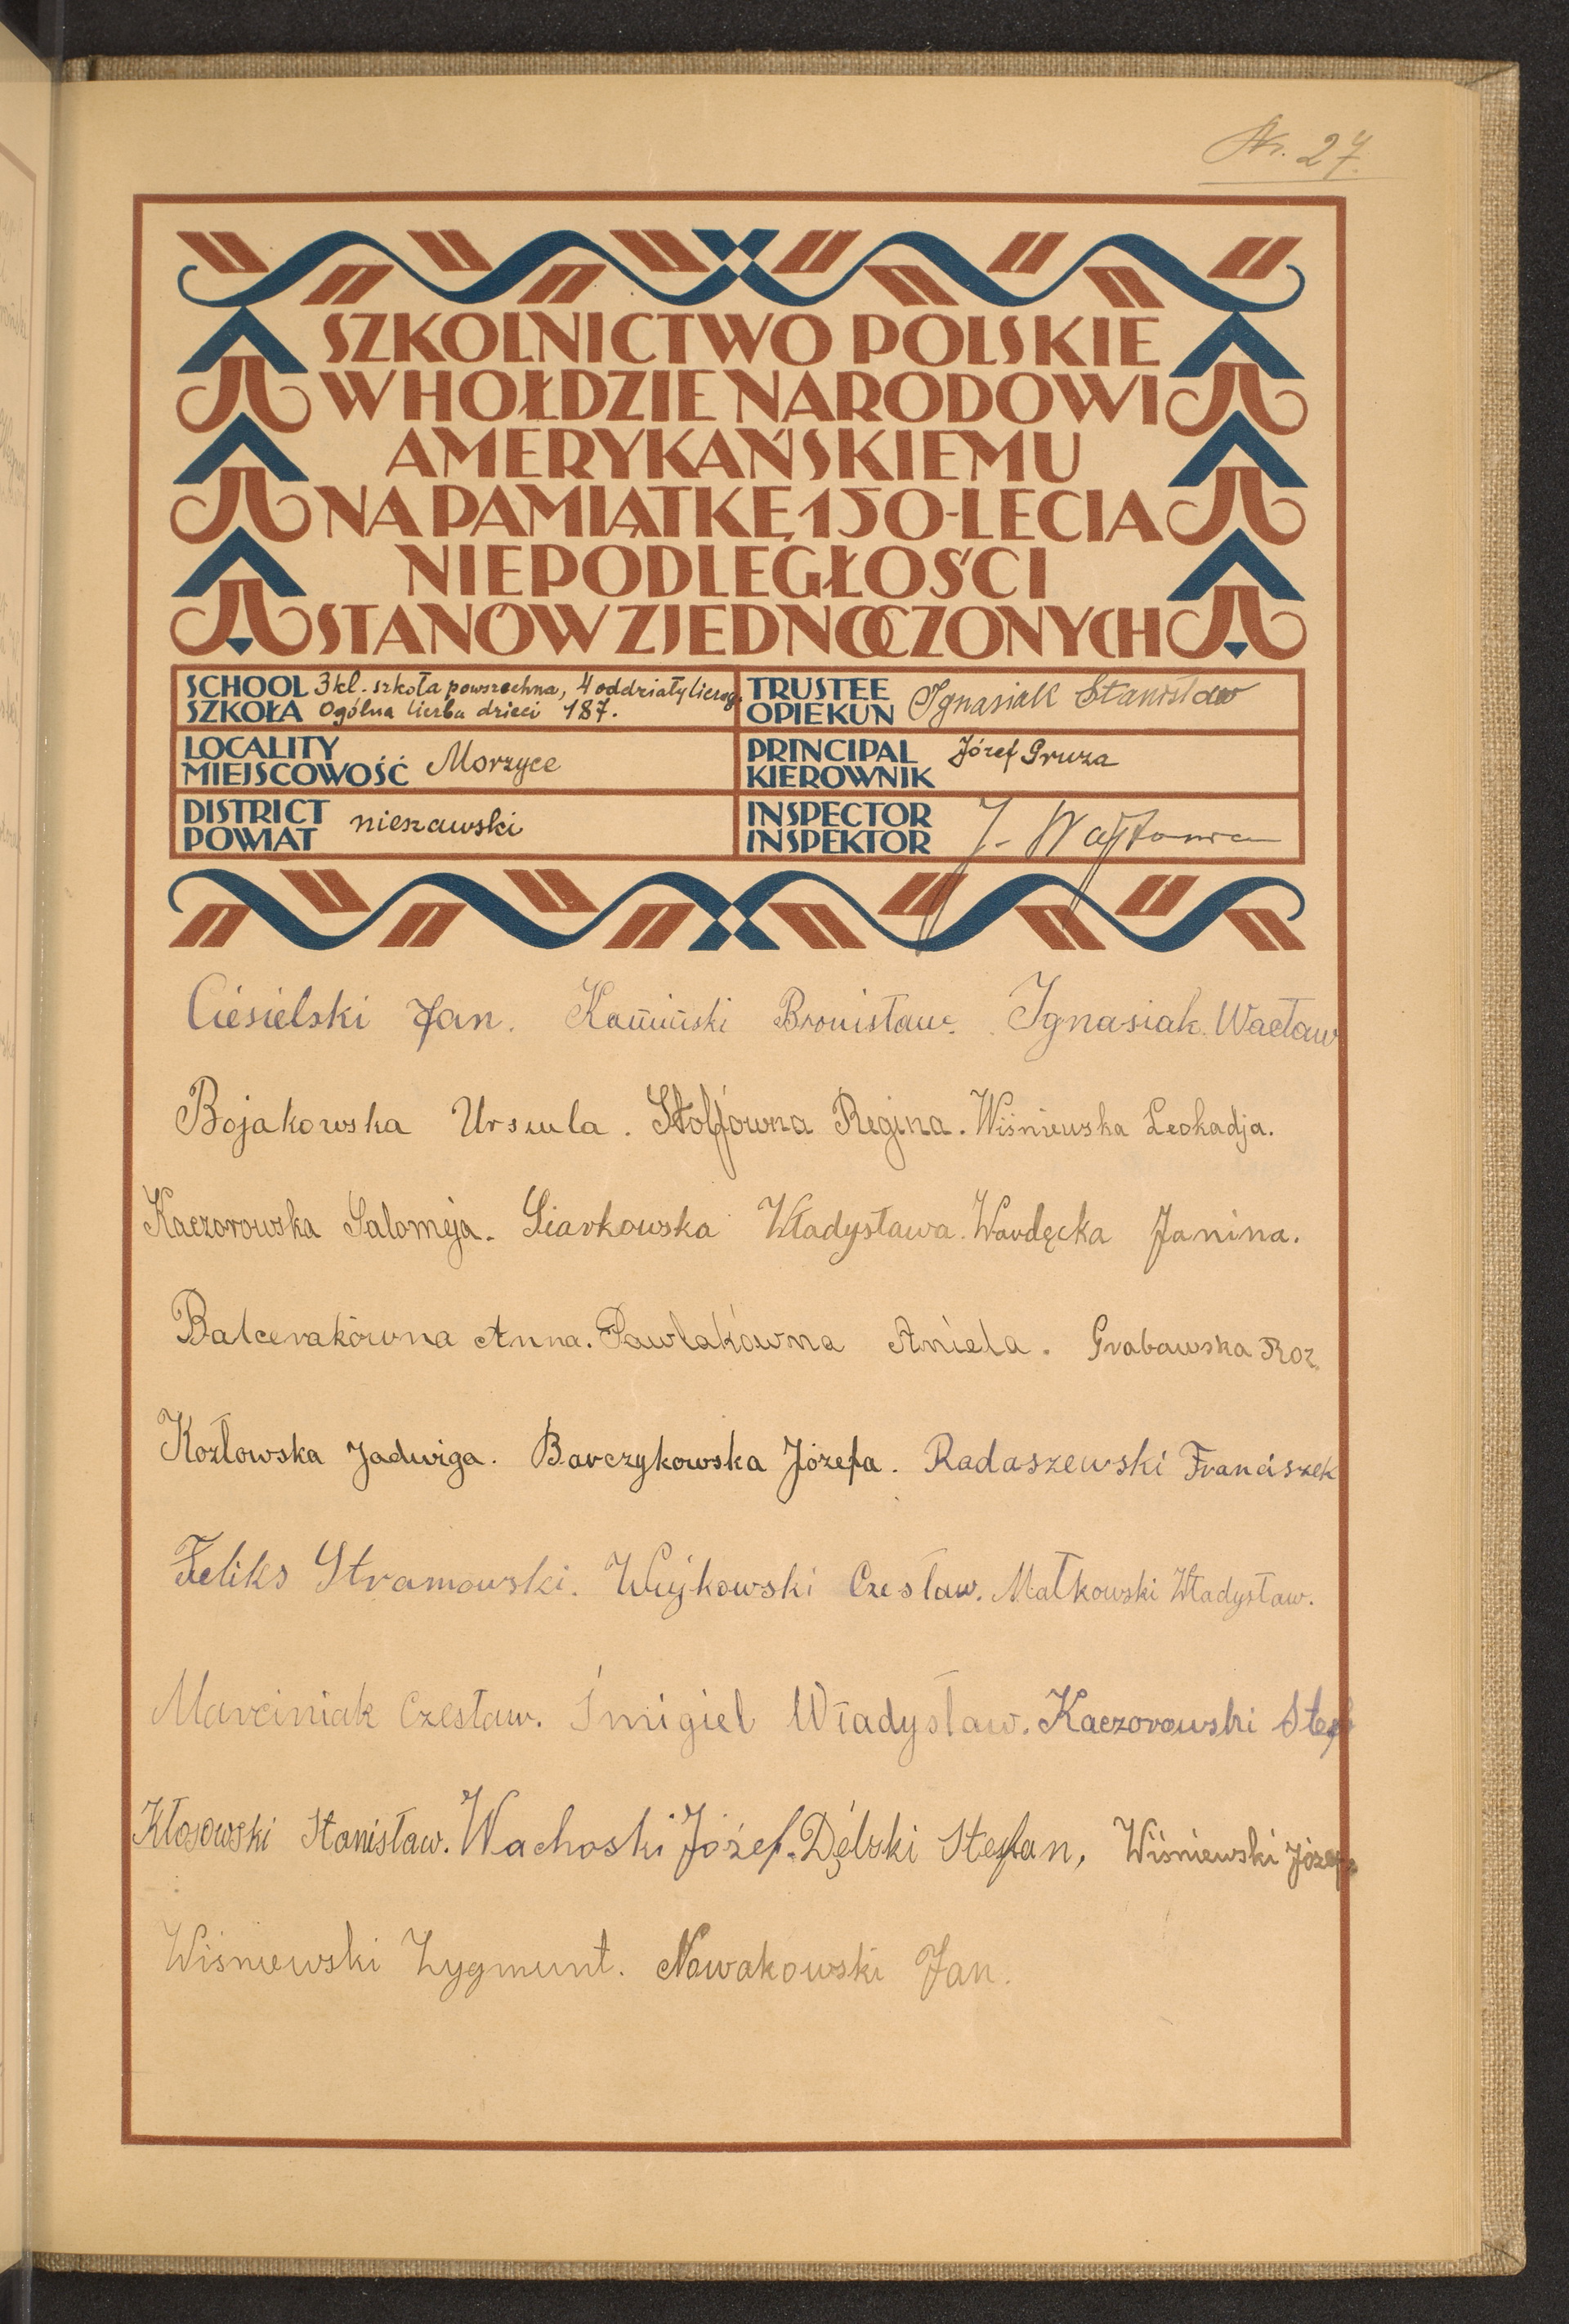 Nr. 27.
SZKOLNICTWO POLSKIE
W HOŁDZIE NARODOWI
AMERYKAŃSKIEMU
NA PAMIĄTKĘ 150-LECIA
NIEPODLEGŁOŚCI
STANÓW ZJEDNOCZONYCH
SCHOOL 3 kl. szkoła powszechna, 4 oddziały liczą
SZKOŁA Ogólna liczba dzieci 187.
TRUSTEE
OPIEKUN Ignasiak Stanisław
LOCALITY
MIEJSCOWOŚĆ Morzyce
PRINCIPAL
KIEROWNIK Józef Gruza
DISTRICT
POWIAT nieszawski
INSPECTOR
INSPEKTOR J.
Ciesielski Jan. Kamiński Bronisław. Ignasiak Wacław
Bojakowska Urszula. Stolfówna Regina. Wiśniewska Leokadja.
Kaczorowska Salomeja. Siarkowska Władysława. Wardęcka Janina.
Balcerakówna Anna. Pawlakówna Aniela. Grabawska Roz.
Kozłowska Jadwiga. Barczykowska Józefa. Radaszewski Franciszek
Feliks Stramowski. Wujkowski Czesław. Małkowski Władysław.
Marciniak Czesław. Śmigiel Władysław. Kaczorowski Stef
Kłosowski Stanisław. Wachoski Józef. Dęlski Stefan, Wiśniewski Józef
Wiśniewski Zygmunt. Nowakowski Jan.